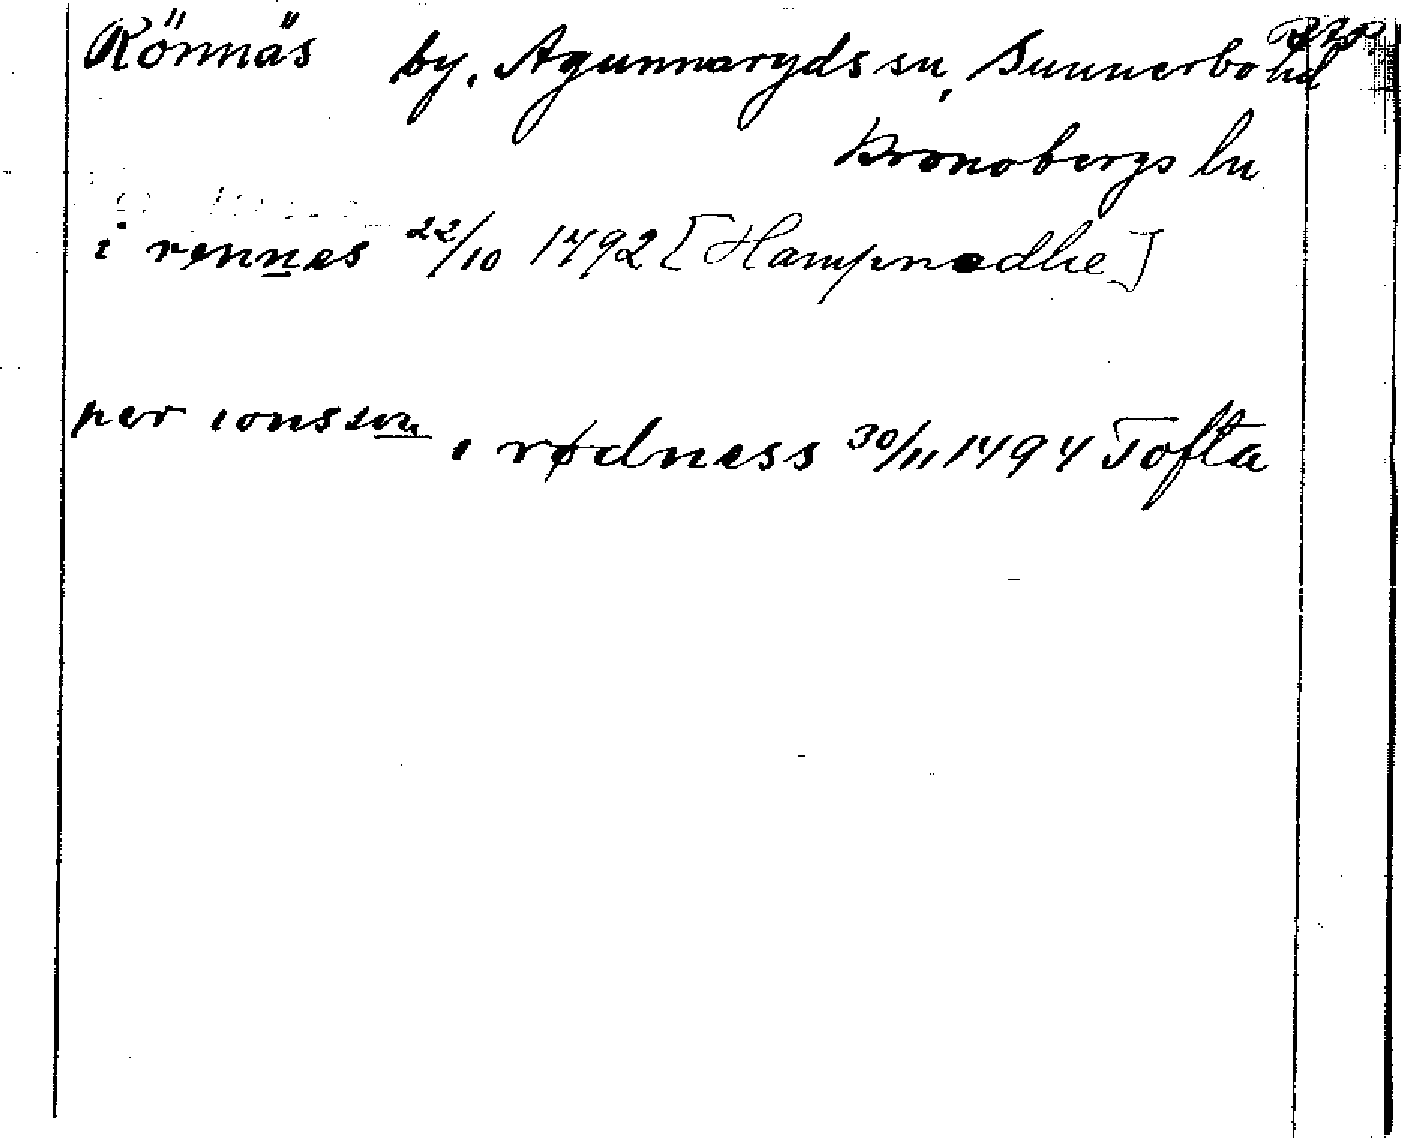 Rönnäs by, Agunnaryds sn, Sunnerbo hd
Kronobergs ln
i rennes 22/10 1492 [Hampnedhe]
per ionsson i rødness 30/11 1494 Tofta